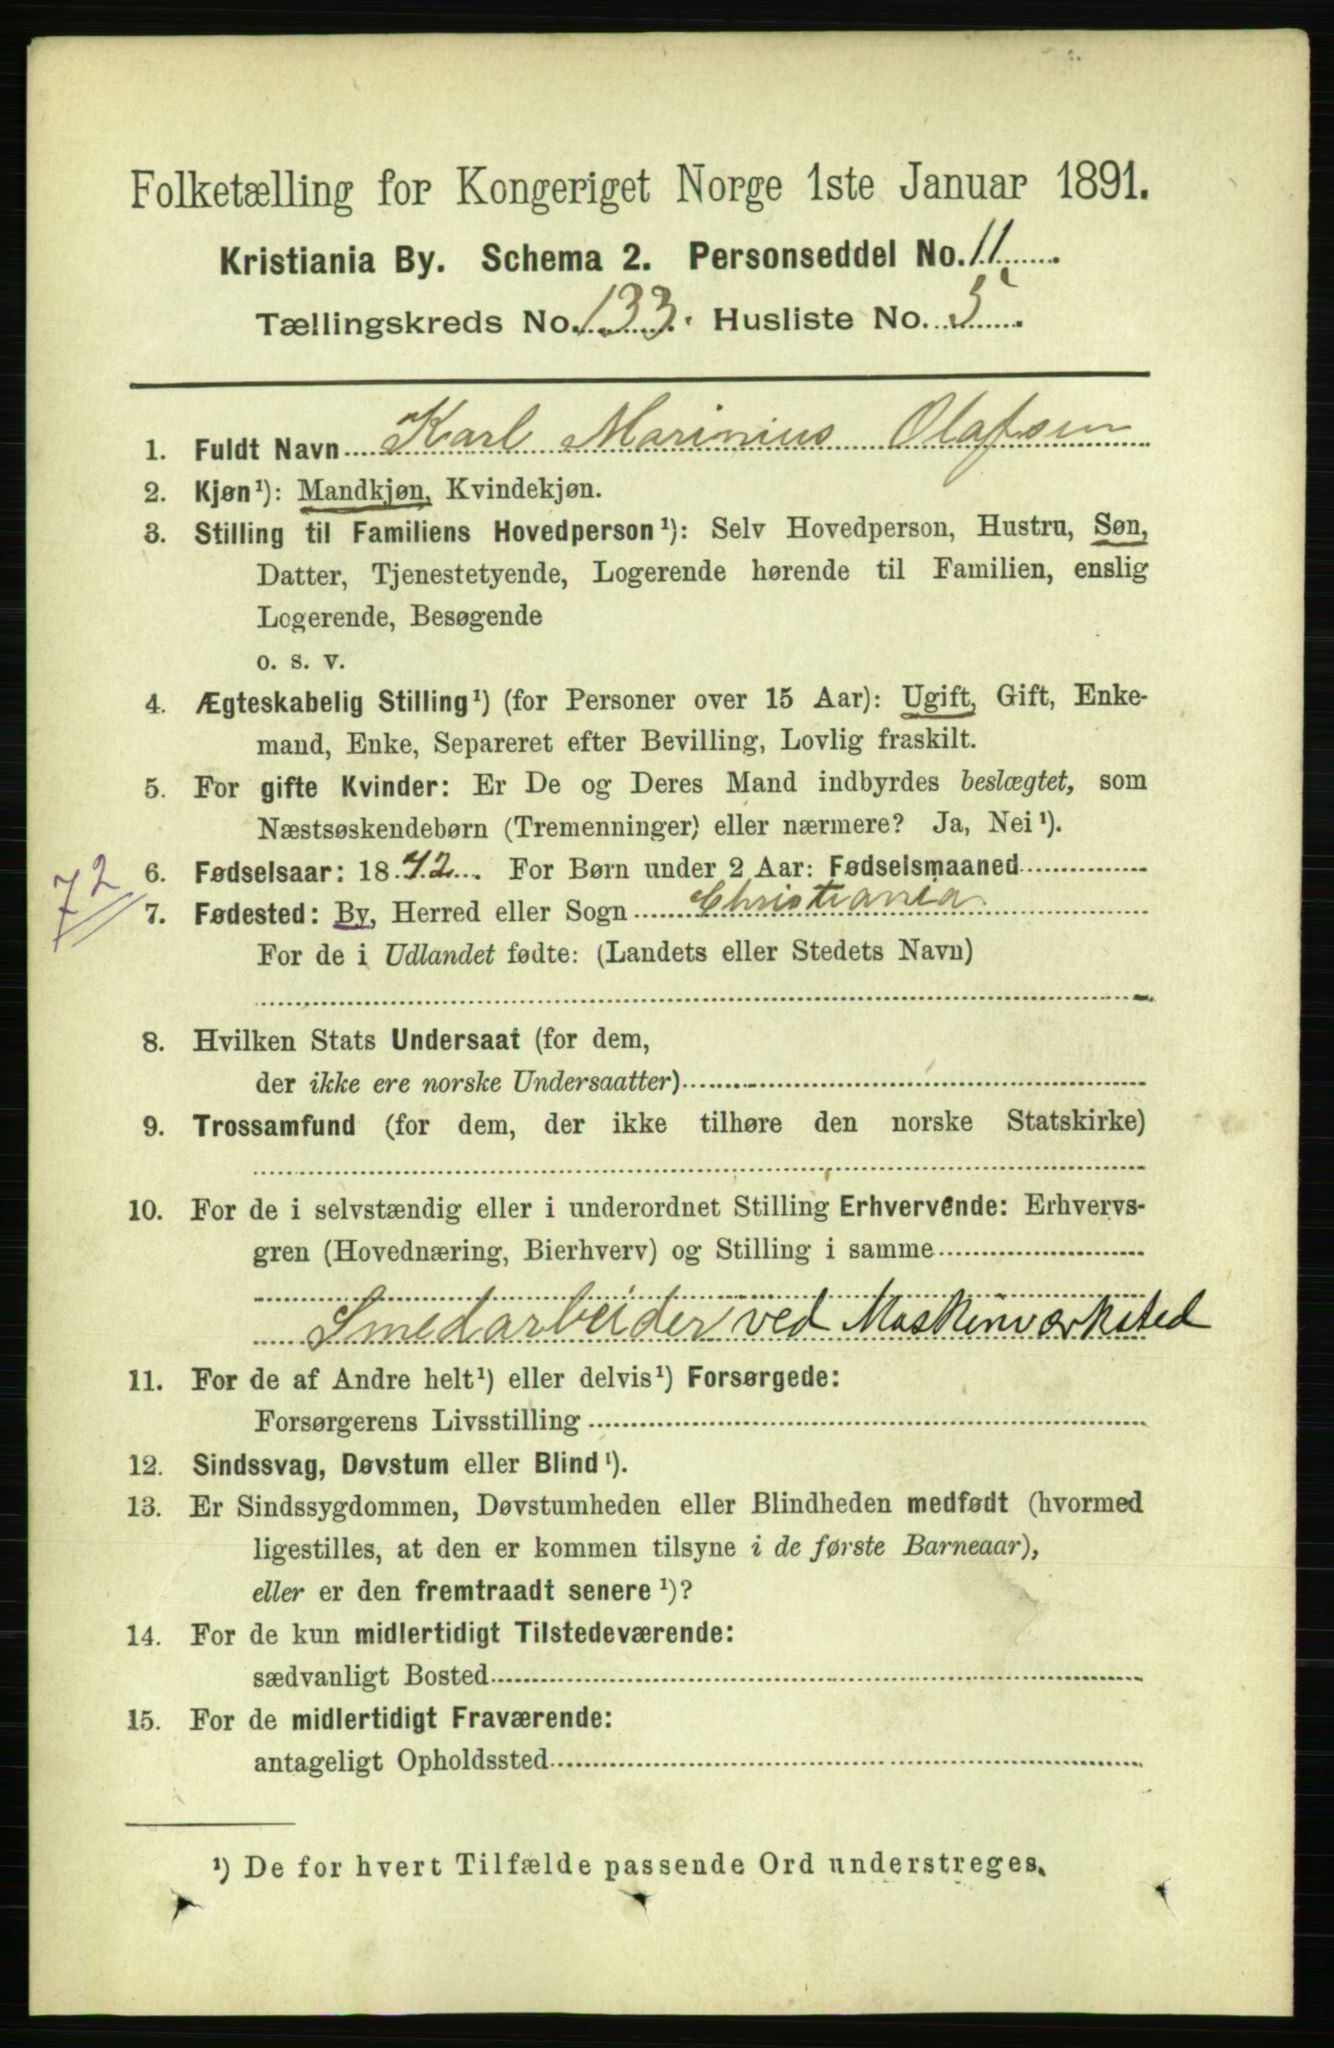 Folketælling for Kongeriget Norge 1ste Januar 1891.
Kristiania By. Schema 2. Personseddel No. 11
Tællingskreds No. 133. Husliste No. 5
1. Fuldt Navn Karl Marinius Olafsen
2. Kjøn¹): Mandkjøn, Kvindekjøn.
3. Stilling til Familiens Hovedperson¹): Selv Hovedperson, Hustru, Søn,
Datter, Tjenestetyende, Logerende hørende til Familien, enslig
Logerende, Besøgende
o. s. v.
4. Ægteskabelig Stilling¹) (for Personer over 15 Aar): Ugift, Gift, Enke-
mand, Enke, Separeret efter Bevilling, Lovlig fraskilt.
5. For gifte Kvinder: Er De og Deres Mand indbyrdes beslægtet, som
Næstsøskendebørn (Tremenninger) eller nærmere? Ja, Nei¹).
6. Fødselsaar: 1872. For Børn under 2 Aar: Fødselsmaaned
72
7. Fødested: By, Herred eller Sogn Christiania
For de i Udlandet fødte: (Landets eller Stedets Navn)
8. Hvilken Stats Undersaat (for dem,
der ikke ere norske Undersaatter)
9. Trossamfund (for dem, der ikke tilhøre den norske Statskirke)
10. For de i selvstændig eller i underordnet Stilling Erhvervende: Erhvervs-
gren (Hovednæring, Bierhverv) og Stilling i samme
Smedarbeider ved Maskinværksted
11. For de af Andre helt¹) eller delvis¹) Forsørgede:
Forsørgerens Livsstilling
12. Sindssvag, Døvstum eller Blind¹).
13. Er Sindssygdommen, Døvstumheden eller Blindheden medfødt (hvormed
ligestilles, at den er kommen tilsyne i de første Barneaar),
eller er den fremtraadt senere¹)?
14. For de kun midlertidigt Tilstedeværende:
sædvanligt Bosted
15. For de midlertidigt Fraværende:
antageligt Opholdssted
¹) De for hvert Tilfælde passende Ord understreges.